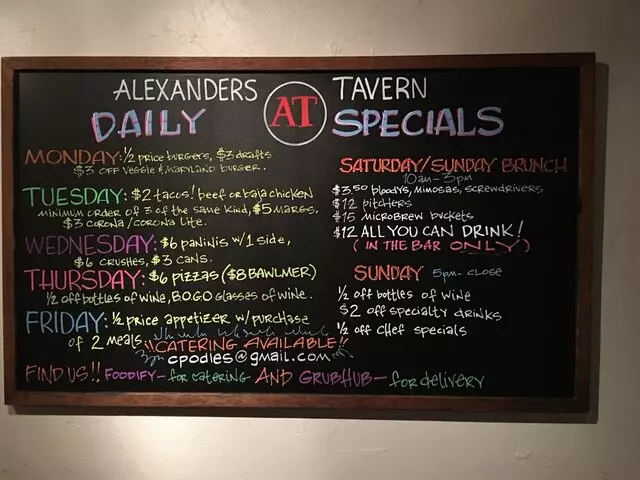 ALEXANDERS AT TAVERN
DAILY SPECIALS
MONDAY: 1/2 price burgers, $3 drafts
$3 off veggie & maryland burger.
TUESDAY: $2 tacos! beef or baja chicken
minimum order of 3 of the same kind, $5 margs,
$3 corona/corona lite.
WEDNESDAY: $6 paninis w/1 side,
$6 crushes, $3 cans.
THURSDAY: $6 pizzas ($8 BAWLMER)
1/2 off bottles of wine, BOGO glasses of wine.
FRIDAY: 1/2 price appetizer w/ purchase
of 2 meals
SATURDAY/SUNDAY BRUNCH
10am-3pm
$3.50 bloodys, mimosas, screwdrivers
$12 pitchers
$15 microbrew buckets
$12 ALL YOU CAN DRINK!
(IN THE BAR ONLY)
SUNDAY 5pm-close
1/2 off bottles of wine
$2 off specialty drinks
1/2 off chef specials
!!CATERING AVAILABLE!!
cpodles@gmail.com
FIND US!! FOODIFY - for catering AND GRUBHUB - for delivery